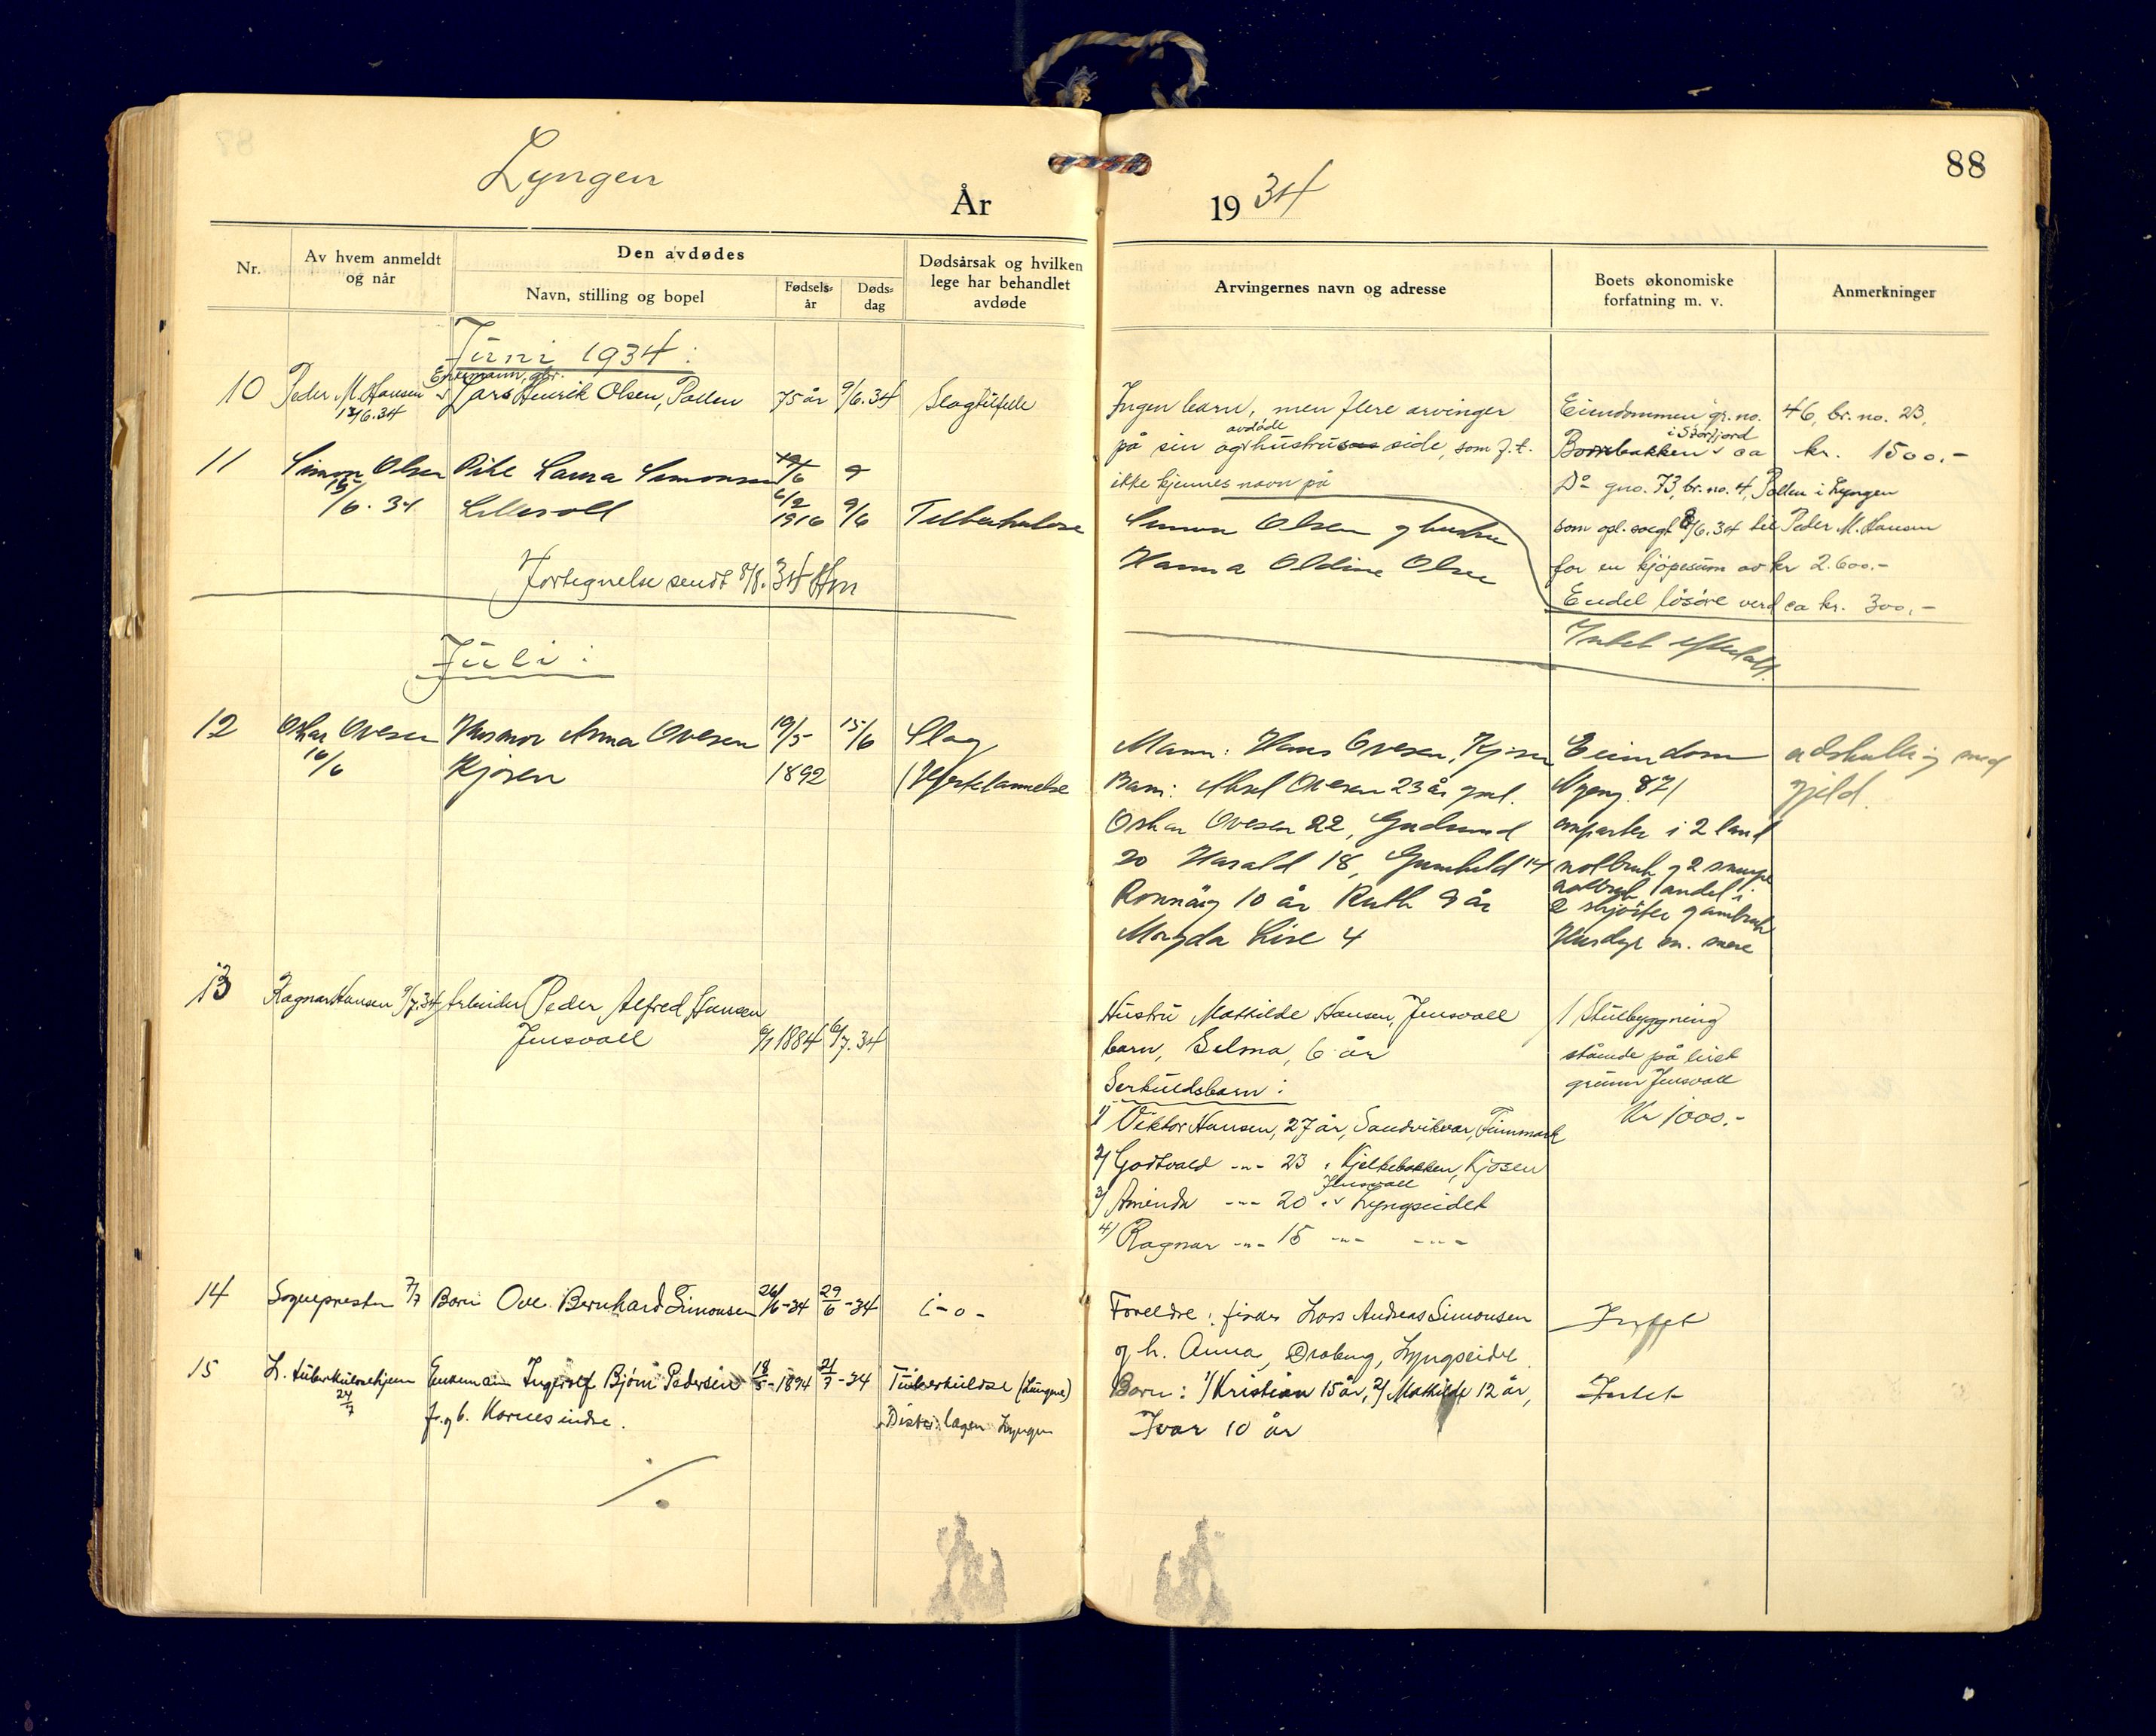 88
Lyngen
År
19 34
Nr.
Av hvem anmeldt
og når
Den avdødes
Navn, stilling og bopel
Fødsels-
år
Døds-
dag
Dødsårsak og hvilken
lege har behandlet
avdøde
Arvingernes navn og adresse
Boets økonomiske
forfatning m. v.
Anmerkninger
Juni 1934:
Enkemann, gbr.
10 Peder M. Hansen Lars Henrik Olsen, Pollen 75 år 9/6.34 Slagtilfelle
12/6.34
Ingen barn, men flere arvinger
avdøde
på sin hustrus side, som f.t.
ikke kjennes navn på
Eiendommen gr.no. 46, br. no. 23,
i Storfjord
ca kr. 1500.-
Do gno. 73, br. no. 4, Pollen i Lyngen
som opl. solgt 8/6.34 til Peder M. Hansen
for en kjøpesum av kr 2.600.-
Endel løsøre verd ca kr. 300.-
11 Simon Olsen Pike Laura Simonsen
15/6. 34 6/2 1916 9/6 Tuberkulose
Simon Olsen og hustru
Hanna Oldine Olsen
Intet efterlatt.
Fortegnelse sendt 8/8. 34 Hm
Juli:
12 Oskar Ovesen Husmor Anna Ovesen 19/5 15/6 Slag
16/6 Kjosen 1892 (Hjertelammelse
Mann: Hans Ovesen, Kjosen
Barn: Aksel Ovesen 23 år
Oskar Ovesen 22, Gudrund
20 Harald 18, Gunhild 14
Ronnaug 10 år Ruth 9 år
Magda Lise 4
Eiendom adskillig med
87/ gjeld.
i 2 land
notbruk og 2 snurpe
notbruk (andel i
2 skjøiter
Husdyr m. mere
13 Ragnar Hansen 9/7.34 Arbeider Peder Alfred Hansen
Jensvoll 6/1 1884 6/7.34
Hustru Mathilde Hansen, Jensvoll
barn, Selma, 6 år
Serkullsbarn:
1) Viktor Hansen, 27 år, Sandvikvær, Finnmark
2) Godtvald -"- 23 " Kjelkebakken, Kjosen
Jensvoll
3) Aminda -"- 20 " Lyngseidet
4) Ragnar -"- 15 -"- -"-
1 Stuebyggning
stående på leiet
grunn Jensvoll
Kr 1000.-
14 Sognepresten 7/7 Barn Ove Bernhard Simonsen 26/6-34 29/6-34 i-o-
Foreldre: fisker Lars Andreas Simonsen
og h. Anna, Lyngseidet.
Intet
15 L. tuberkulosehjem Enkemann Ingerolf Bjørn Pedersen 18/5-1894 21/7-34 Tuberkulose (Lunge)
24/7
f. og b. Kornes indre. Distr. lægen Lyngen
Barn: 1) Kristian 15 år, 2) Mathilde 12 år,
Ivar 10 år
Intet